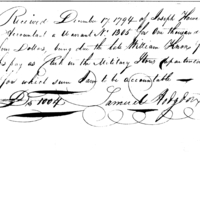 Received December 17, 1794, of Joseph Howell
Accountant a Warrant No 1805 for One thousand
Dollars, being due the late William Knox
pay as Clerk in the Military Store Department
for which sum I am to be accountable
Ds 1004 Samuel Hodgdon